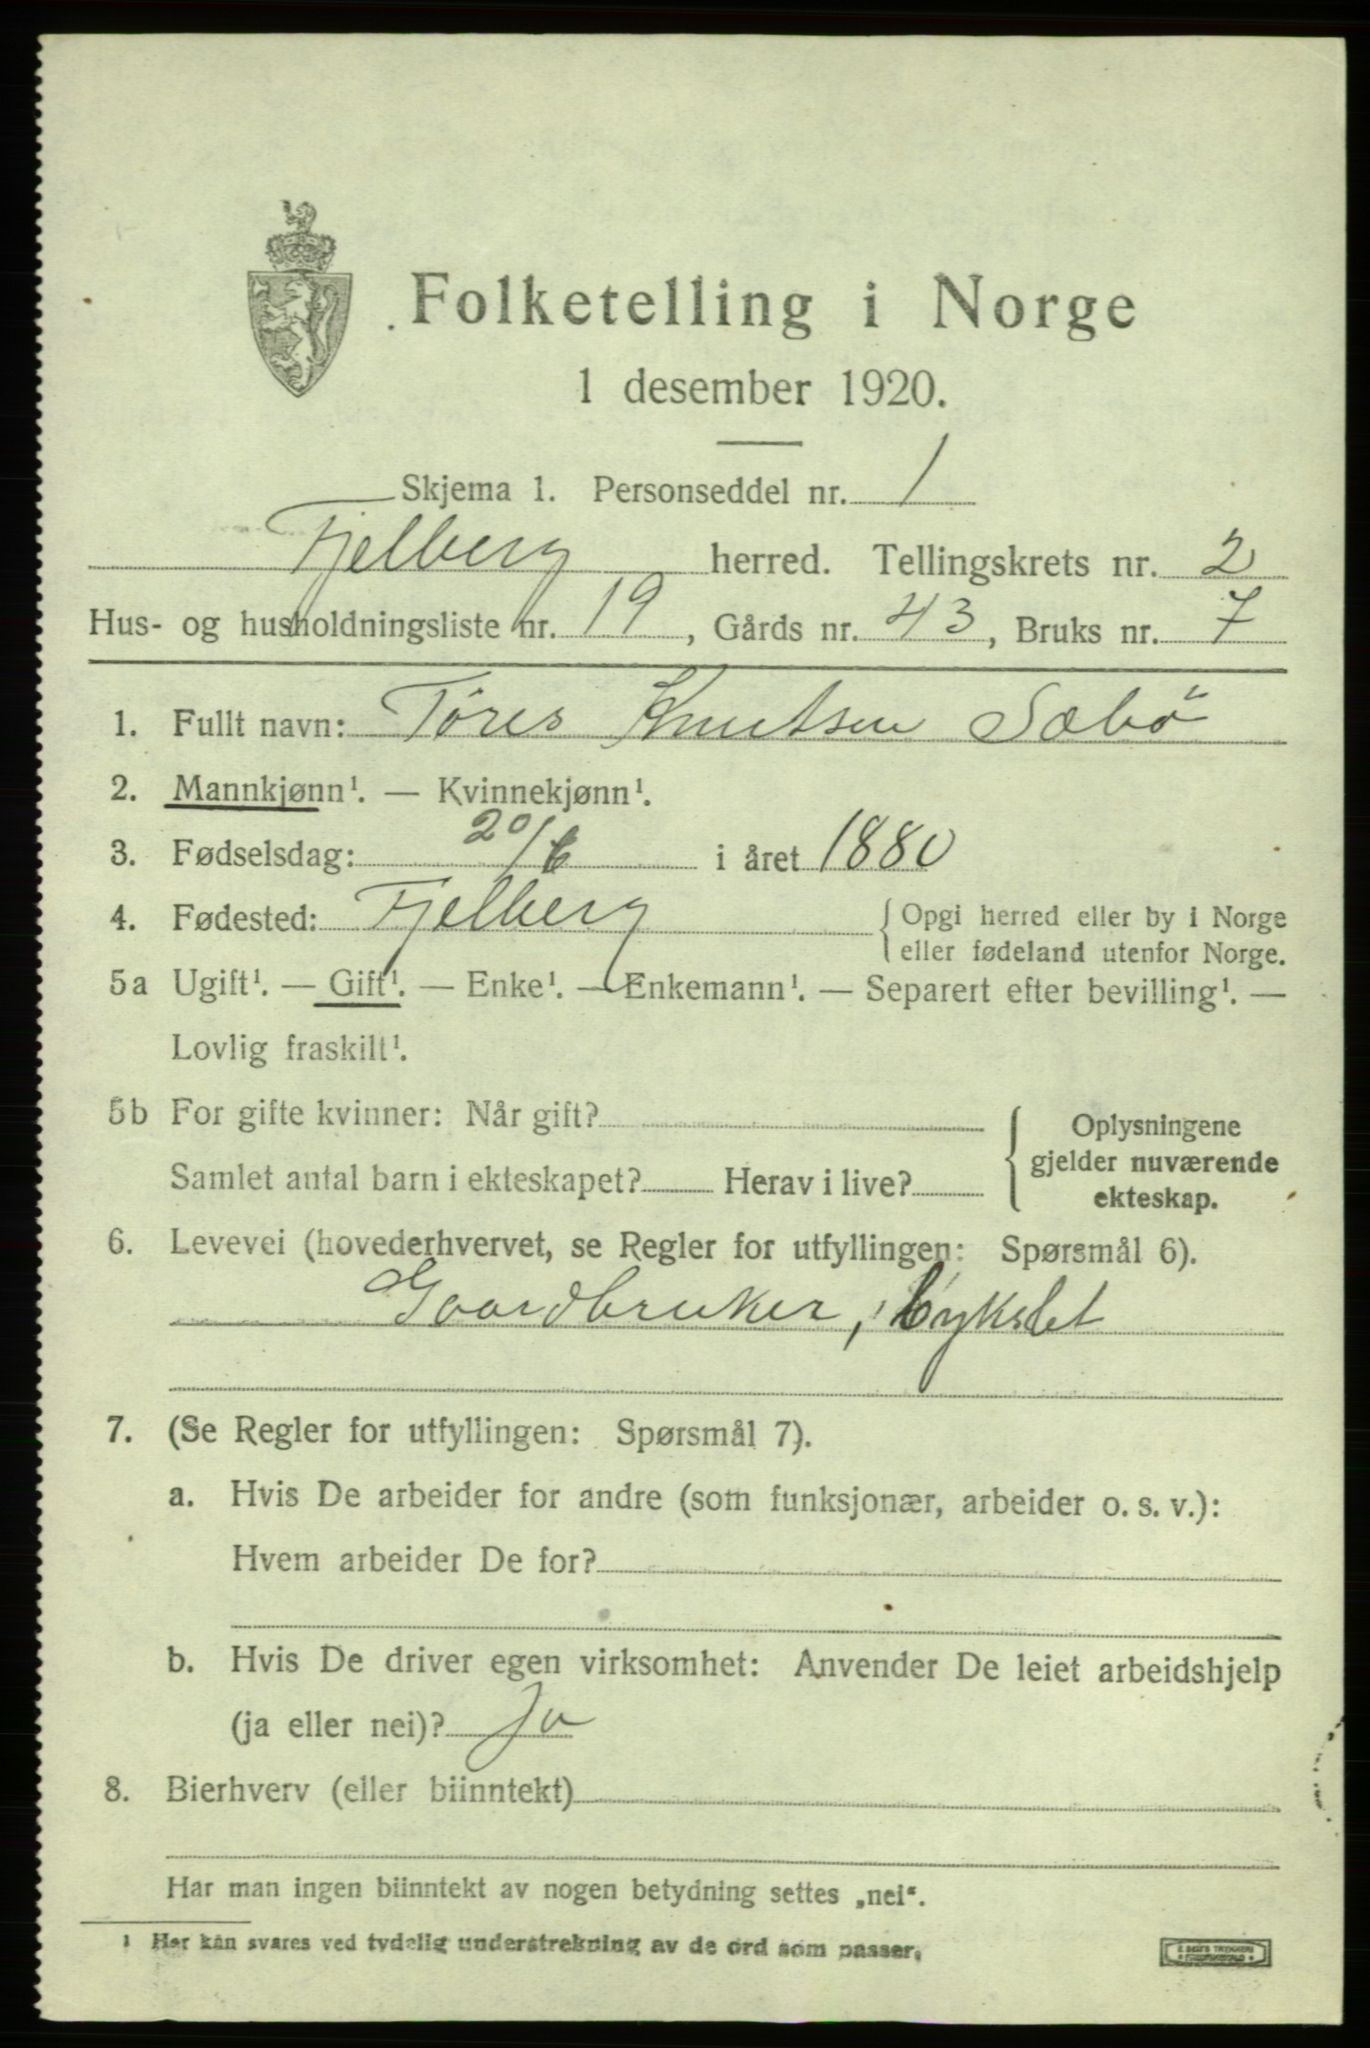 Folketelling i Norge
1 desember 1920.
Skjema 1. Personseddel nr. 1
Fjelberg herred. Tellingskrets nr. 2
Hus- og husholdningsliste nr. 19, Gårds nr. 43, Bruks nr. 7
1. Fullt navn: Tøres Knutsen Sæbö
2. Mannkjønn¹. — Kvinnekjønn¹.
3. Fødselsdag: 20/6 i året 1880
4. Fødested: Fjelberg {Opgi herred eller by i Norge
eller fødeland utenfor Norge.
5a Ugift¹. — Gift¹. — Enke¹. — Enkemann¹. — Separert efter bevilling¹. —
Lovlig fraskilt¹.
5b For gifte kvinner: Når gift? { Oplysningene
gjelder nuværende
Samlet antal barn i ekteskapet? Herav i live? ekteskap.
6. Levevei (hovederhvervet, se Regler for utfyllingen: Spørsmål 6).
Gaardbruker,
7. (Se Regler for utfyllingen: Spørsmål 7).
a. Hvis De arbeider for andre (som funksjonær, arbeider o. s. v.):
Hvem arbeider De for?
b. Hvis De driver egen virksomhet: Anvender De leiet arbeidshjelp
(ja eller nei)? Ja
8. Bierhverv (eller biinntekt)
Har man ingen biinntekt av nogen betydning settes „nei“.
¹ Her kan svares ved tydelig understrekning av de ord som passer.